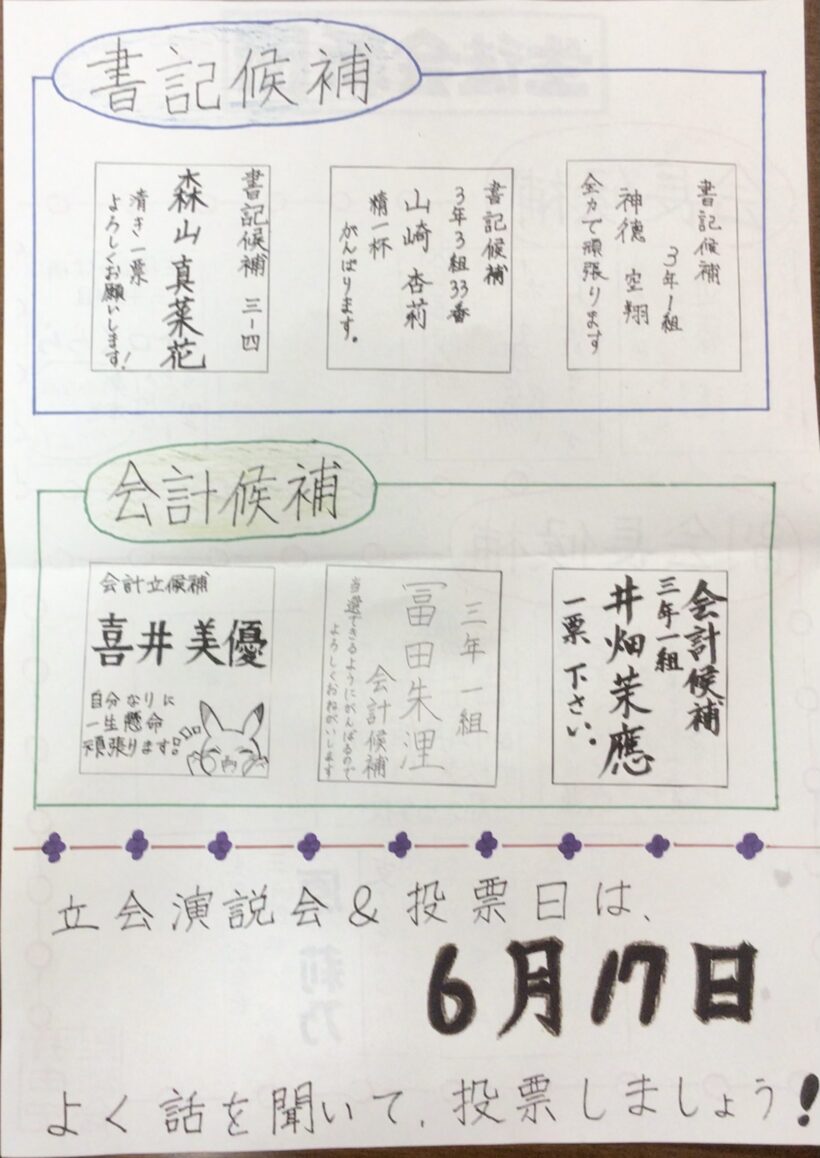 書記候補
書記候補
3年1組
神德 空翔
全力で頑張ります
書記候補
3年3組33番
山崎 杏莉
精一杯
がんばります。
書記候補 三-四
森山 真菜花
清き一票
よろしくお願いします!
会計候補
会計候補
三年一組
井畑茉應
一票下さい。
三年一組
冨田朱浬
会計候補
当選できるようにがんばるので
よろしくおねがいします
会計立候補
喜井美優
自分なりに
一生懸命
頑張ります
立会演説会&投票日は、
6月17日
よく話を聞いて、投票しましょう!